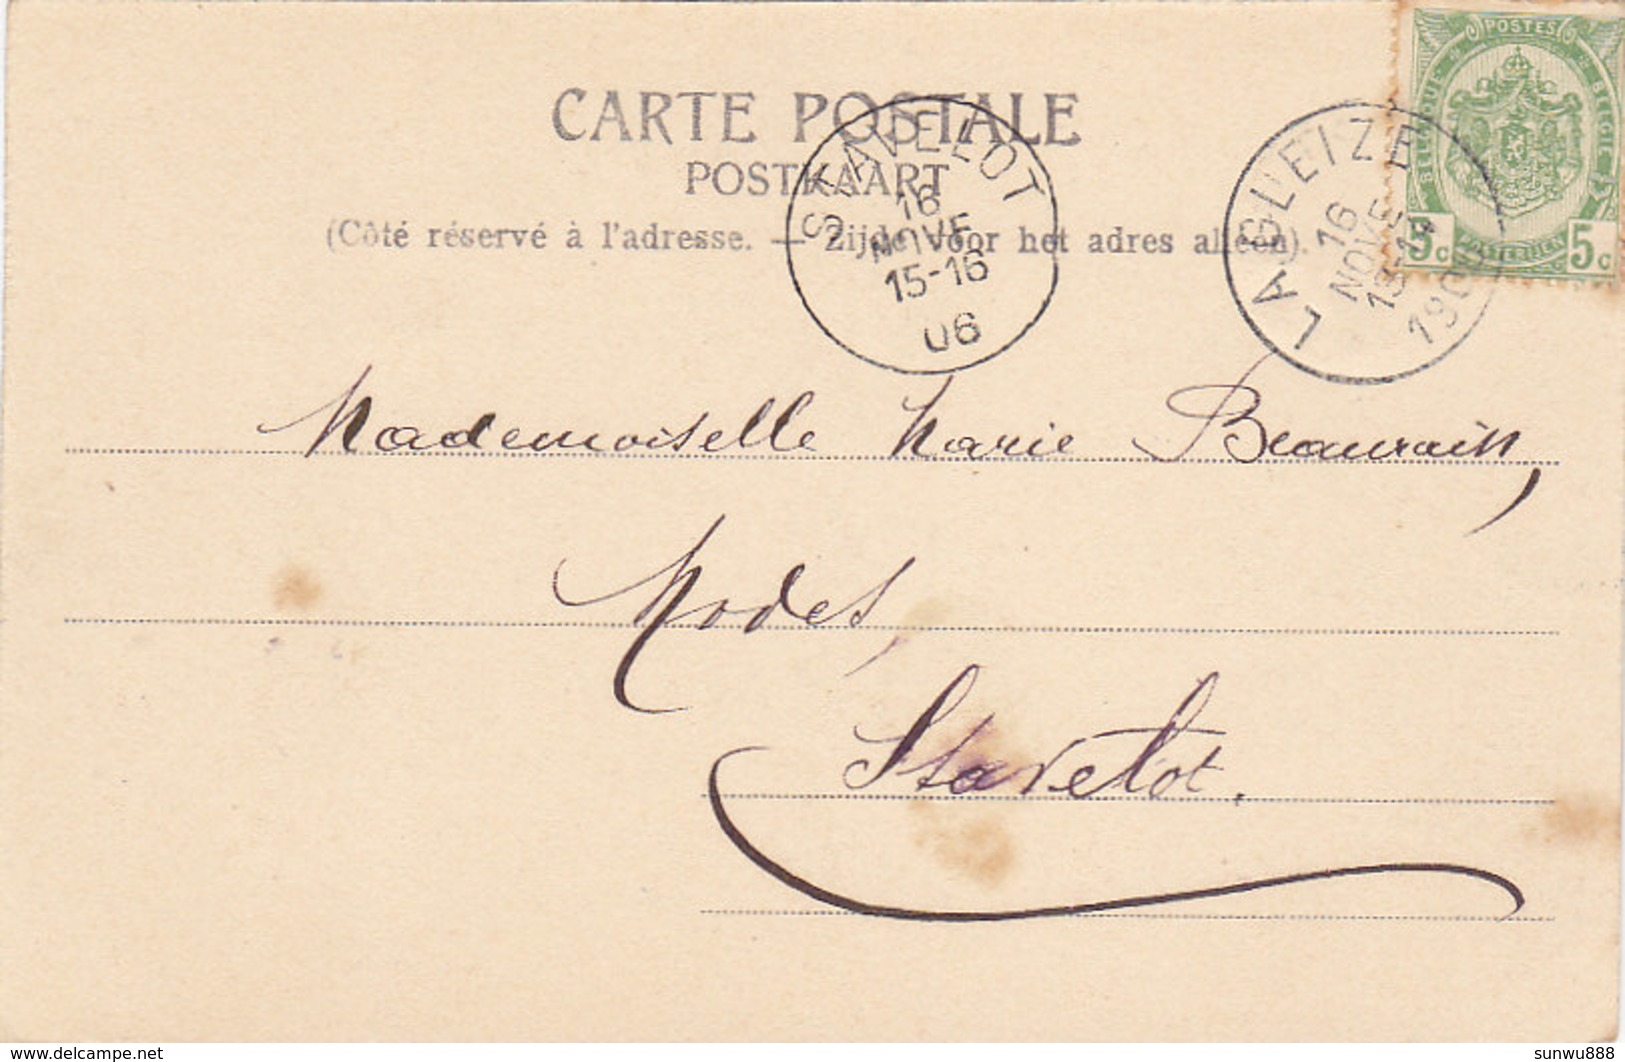 CARTE POSTALE
POSTKAART
(Côté réservé à l'adresse. — Zijde voor het adres alleen).
STAVELOT
16
NOVE
15-16
06
LA GLEIZE
16
NOVE
POSTES
BELGIQUE
BELGIE
5c 5c
Mademoiselle Marie
Modes,
Stavelot.
delcampe.net
sunwu888